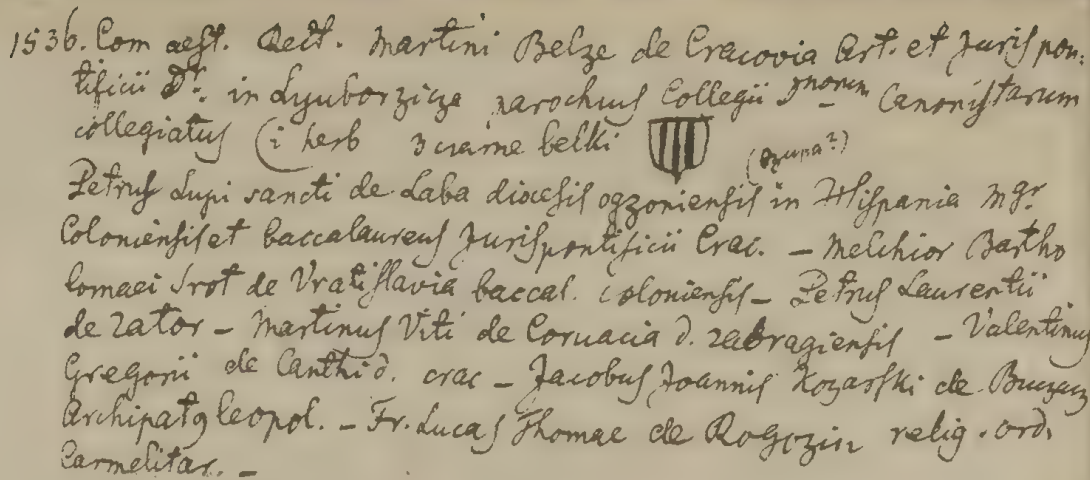 1536. Com aest. Rect. Martini Belze de Cracovia Art. et Juris pon:
tificii Dr. in Lyuborzicze parochus Collegii Jnorum Canonistarum
collegiatus (i herb 3 czarne belki (Szupa?)
Petrus Lupi sancti de Laba diocesis ogzoniensis in Hispania mgr.
Coloniensis et baccalaureus Juris pontificii Crac. – Melchior Bartho
lomaei Srot de Vratislavia baccal. coloniensis – Petrus Laurentii
de Zator – Martinus Viti de Coruacia d. zabragiensis – Valentinus
Gregorii de Canthi d. crac – Jacobus Joannis Kozarski de
Archipat9 leopol. – Fr. Lucas Thomae de Rogozin relig. ord.
Carmelitar. –